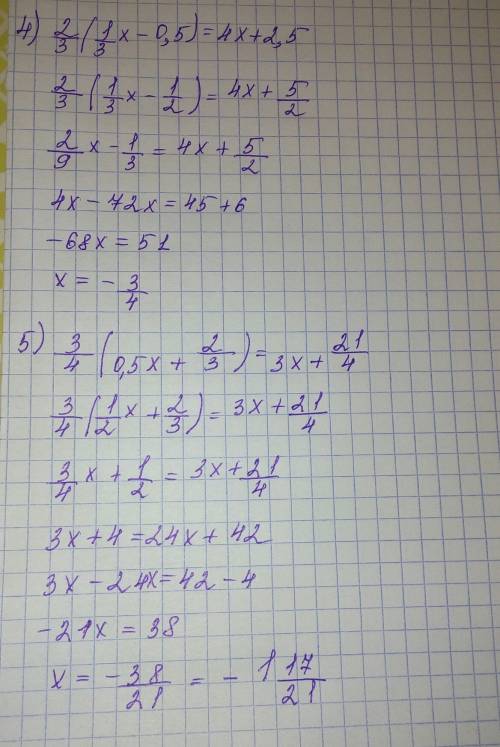 4) 2/3 (1/3 x - 0,5) = 4x + 2,5
2/3 (1/3 x - 1/2) = 4x + 5/2
2/9 x - 1/3 = 4x + 5/2
4x - 72x = 45 + 6
-68x = 51
x = - 3/4
5) 3/4 (0,5x + 2/3) = 3x + 21/4
3/4 (1/2 x + 2/3) = 3x + 21/4
3/4 x + 1/2 = 3x + 21/4
3x + 4 = 24x + 42
3x - 24x = 42 - 4
-21x = 38
x = - 38/21 = - 1 17/21